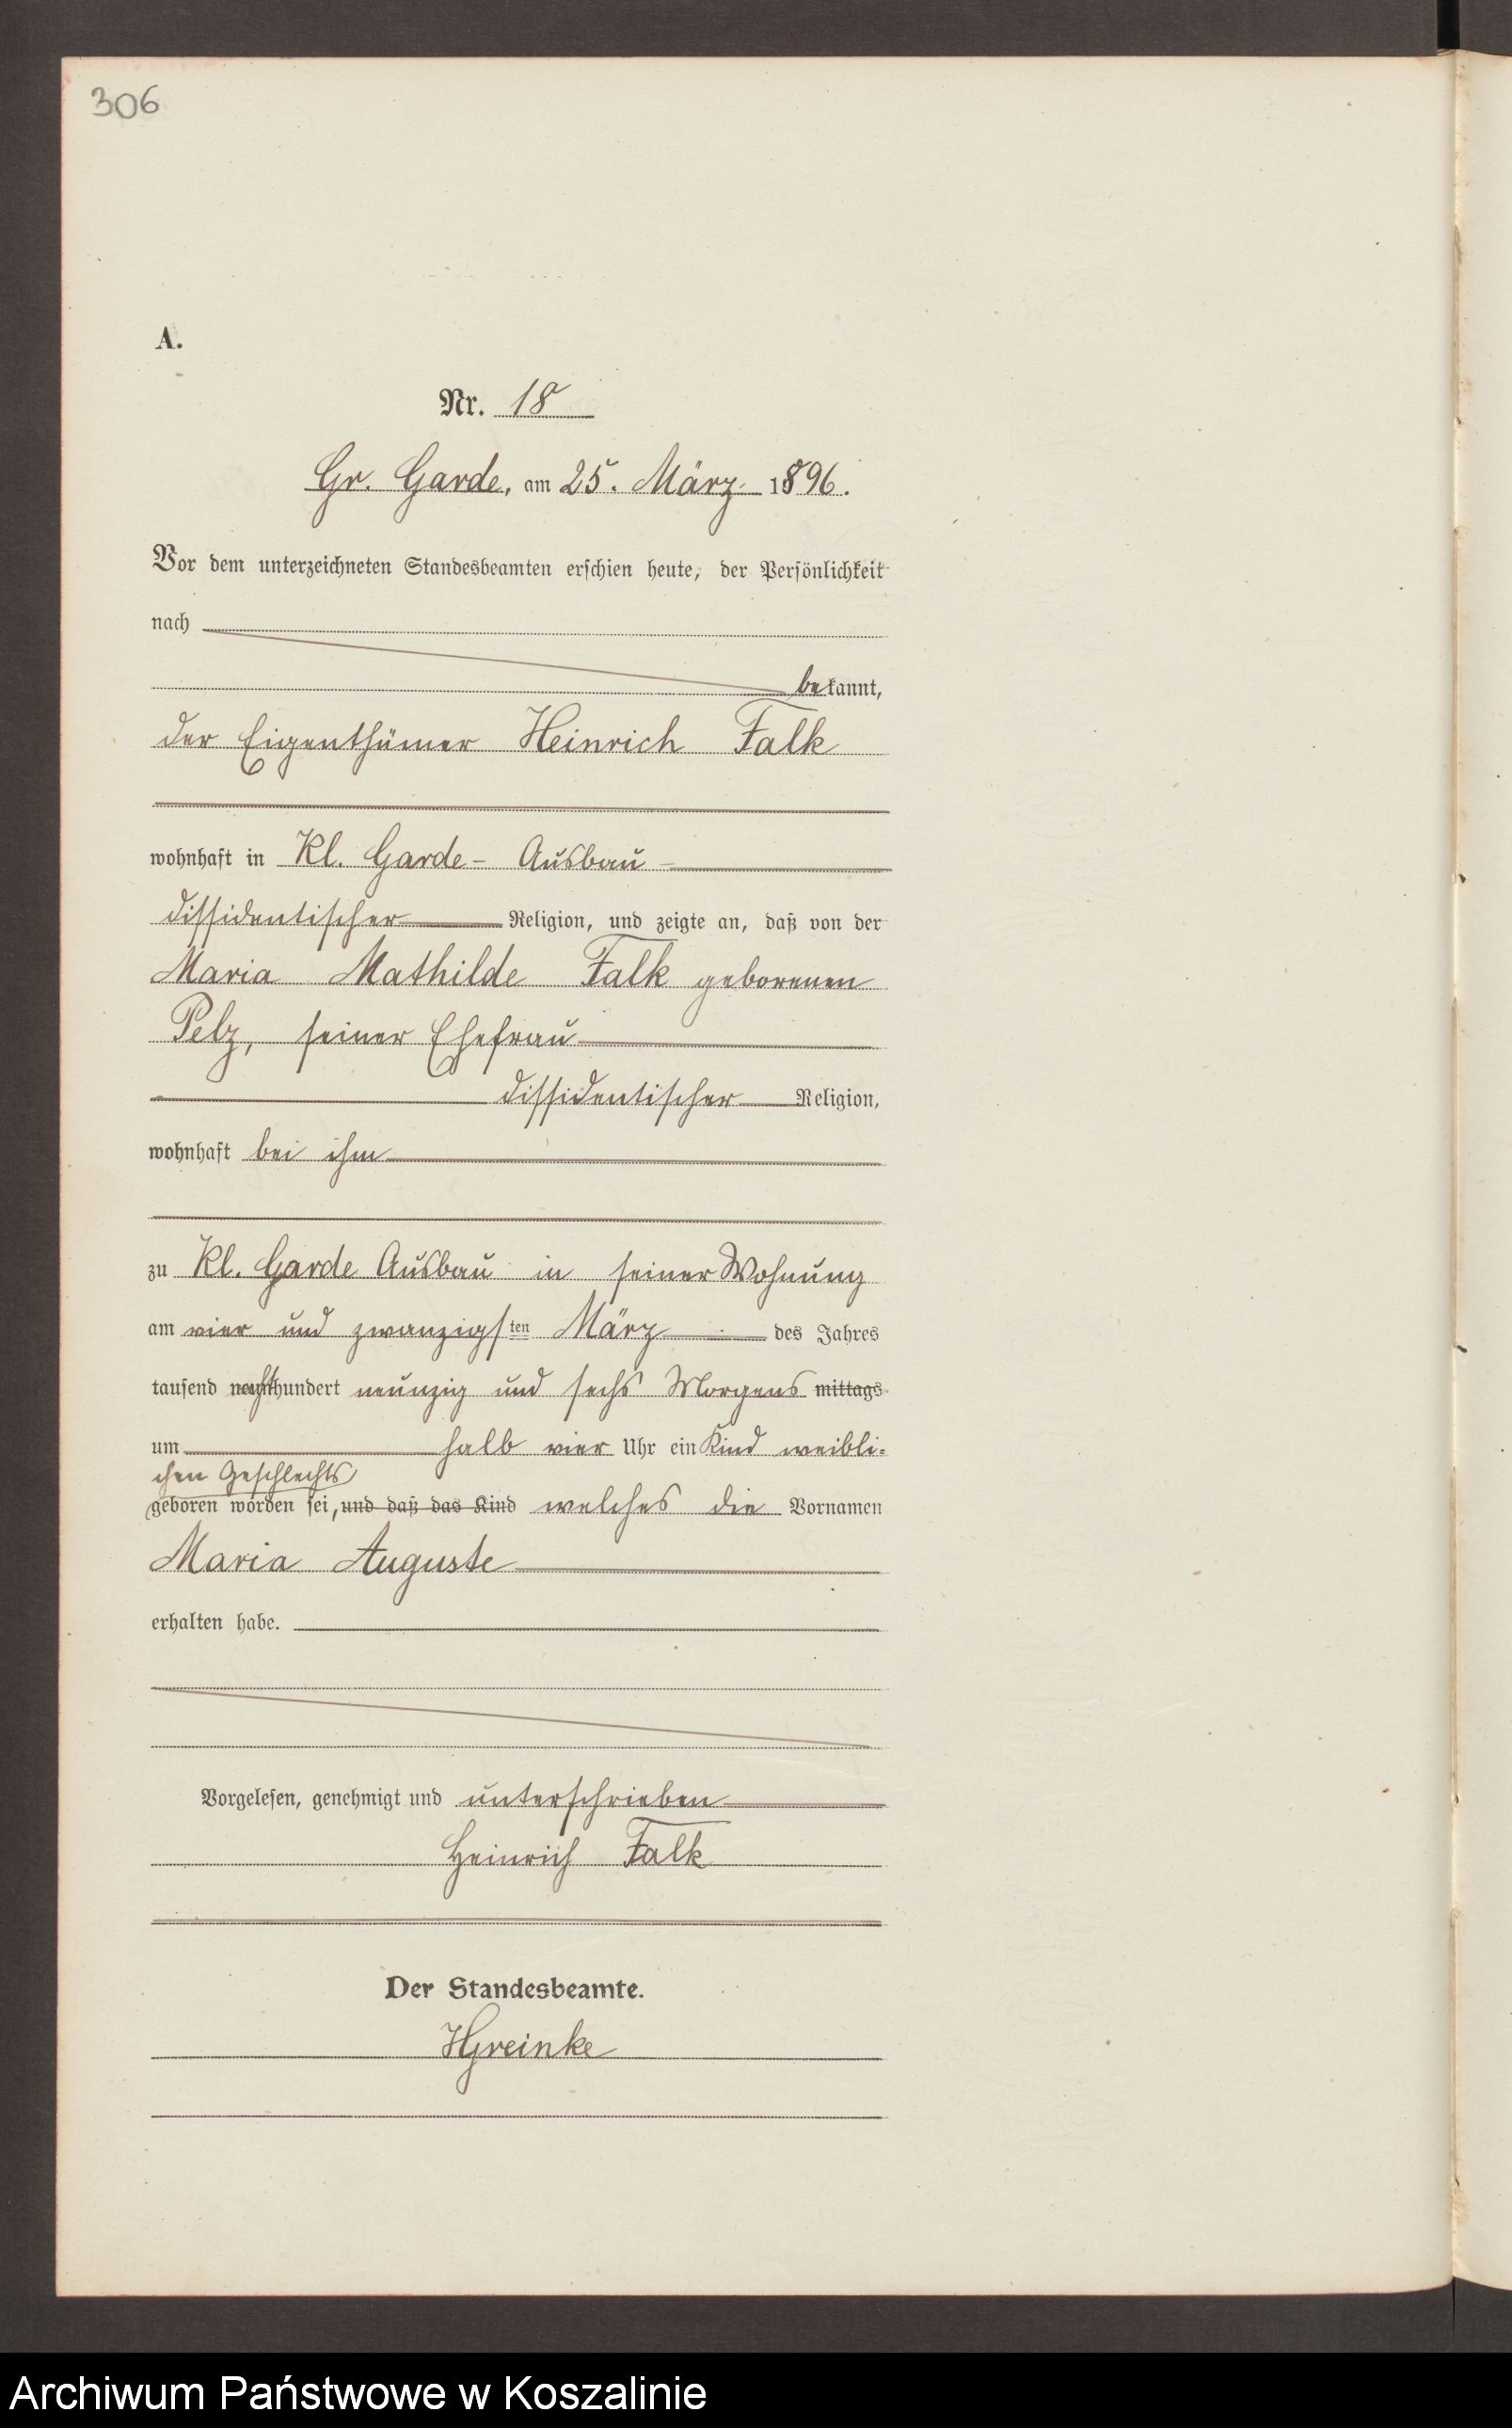 306
A.
Nr. 18
Gr. Garde, am 25. März 1896.
Vor dem unterzeichneten Standesbeamten erschien heute, der Persönlichkeit
nach
bekannt,
der Eigenthümer Heinrich Falk
wohnhaft in Kl. Garde - Ausbau -
dissidentischer Religion, und zeigte an, daß von der
Maria Mathilde Falk geborenen
Pelz, seiner Ehefrau
dissidentischer Religion,
wohnhaft bei ihm
zu Kl. Garde Ausbau in seiner Wohnung
am vier und zwanzigsten März des Jahres
tausend achthundert neunzig und sechs Morgens mittags
um halb vier Uhr ein Kind weibli=
chen Geschlechts
geboren worden sei, und daß das Kind welches die Vornamen
Maria Auguste
erhalten habe.
Vorgelesen, genehmigt und unterschrieben
Heinrich Falk
Der Standesbeamte.
HGreinke
Archiwum Państwowe w Koszalinie